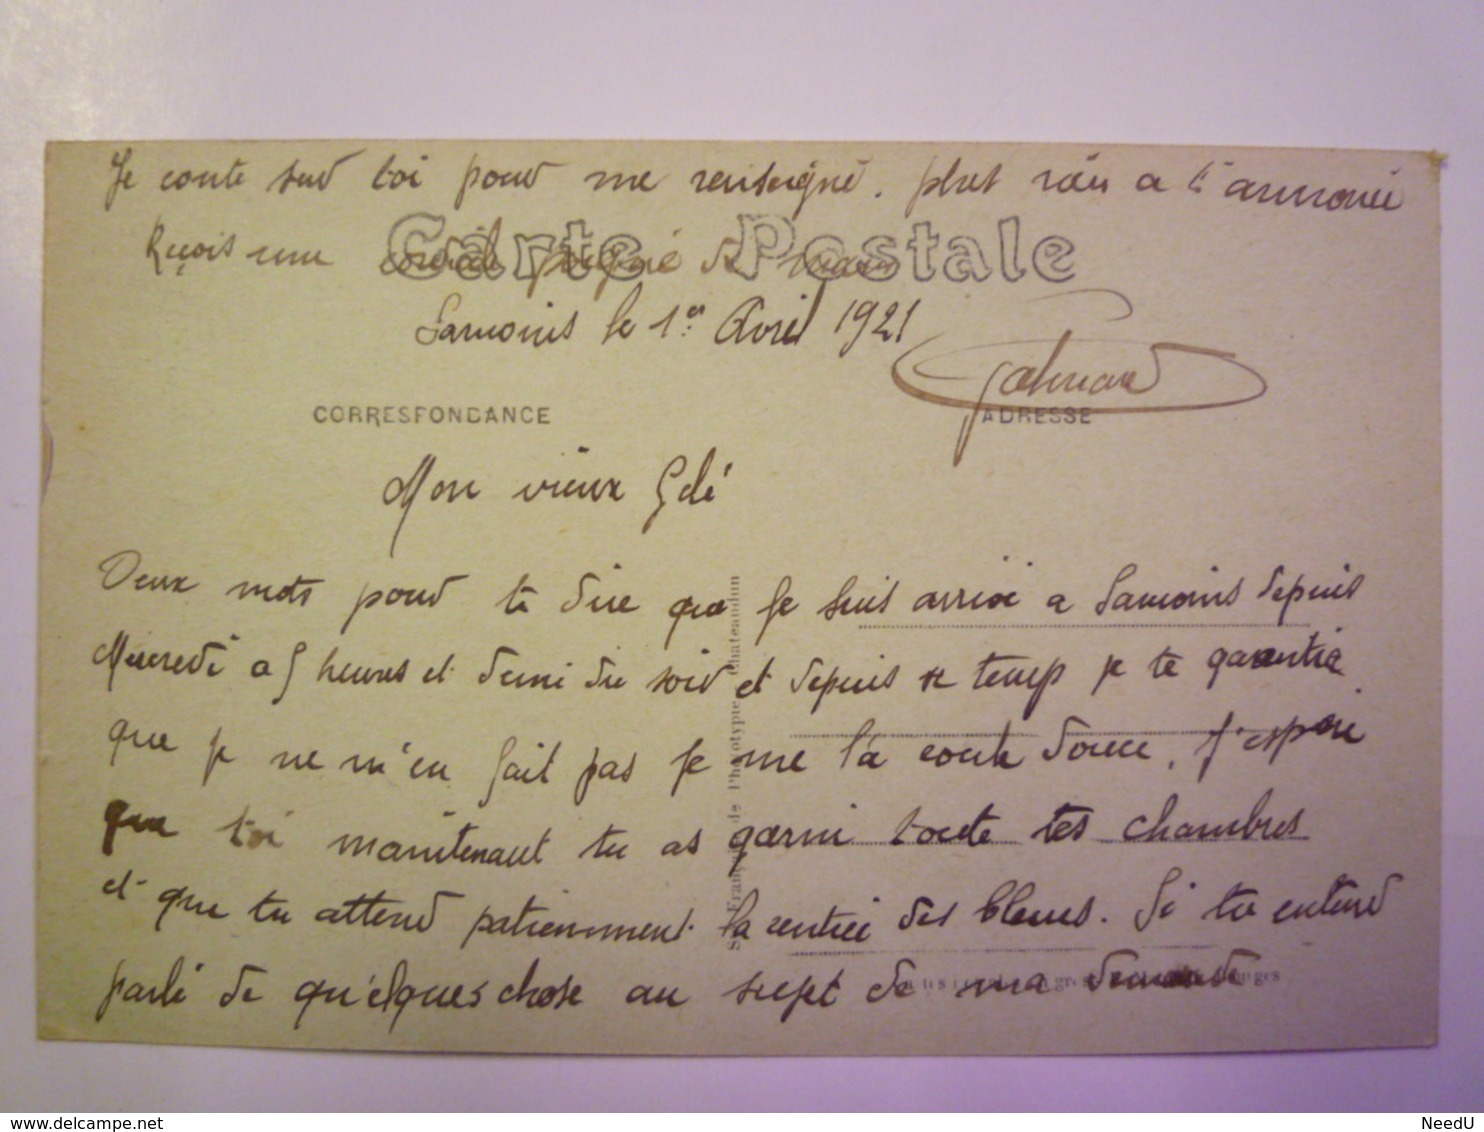 Je conte sur toi pour me renseigné. plus rien a t'
Reçois une poigné de main
Carte Postale
Samoins le 1er Avril 1921
CORRESPONDANCE
ADRESSE
Mon vieux Gelé
Deux mots pour te dire que je suis arrivé a Samoins depuis
Mercredi a 5 heures et demi du soir et depuis ce temp je te garantie
que je ne m'en fait pas je me la coule douce, J'espère
que toi maintenant tu as garni toute tes chambres
et que tu attend patiemment la rentrée des bleus. Si tu entend
parlé de quelques chose au sujet de ma demande
Phototypie Chateaudun
NeedU
delcampe.net